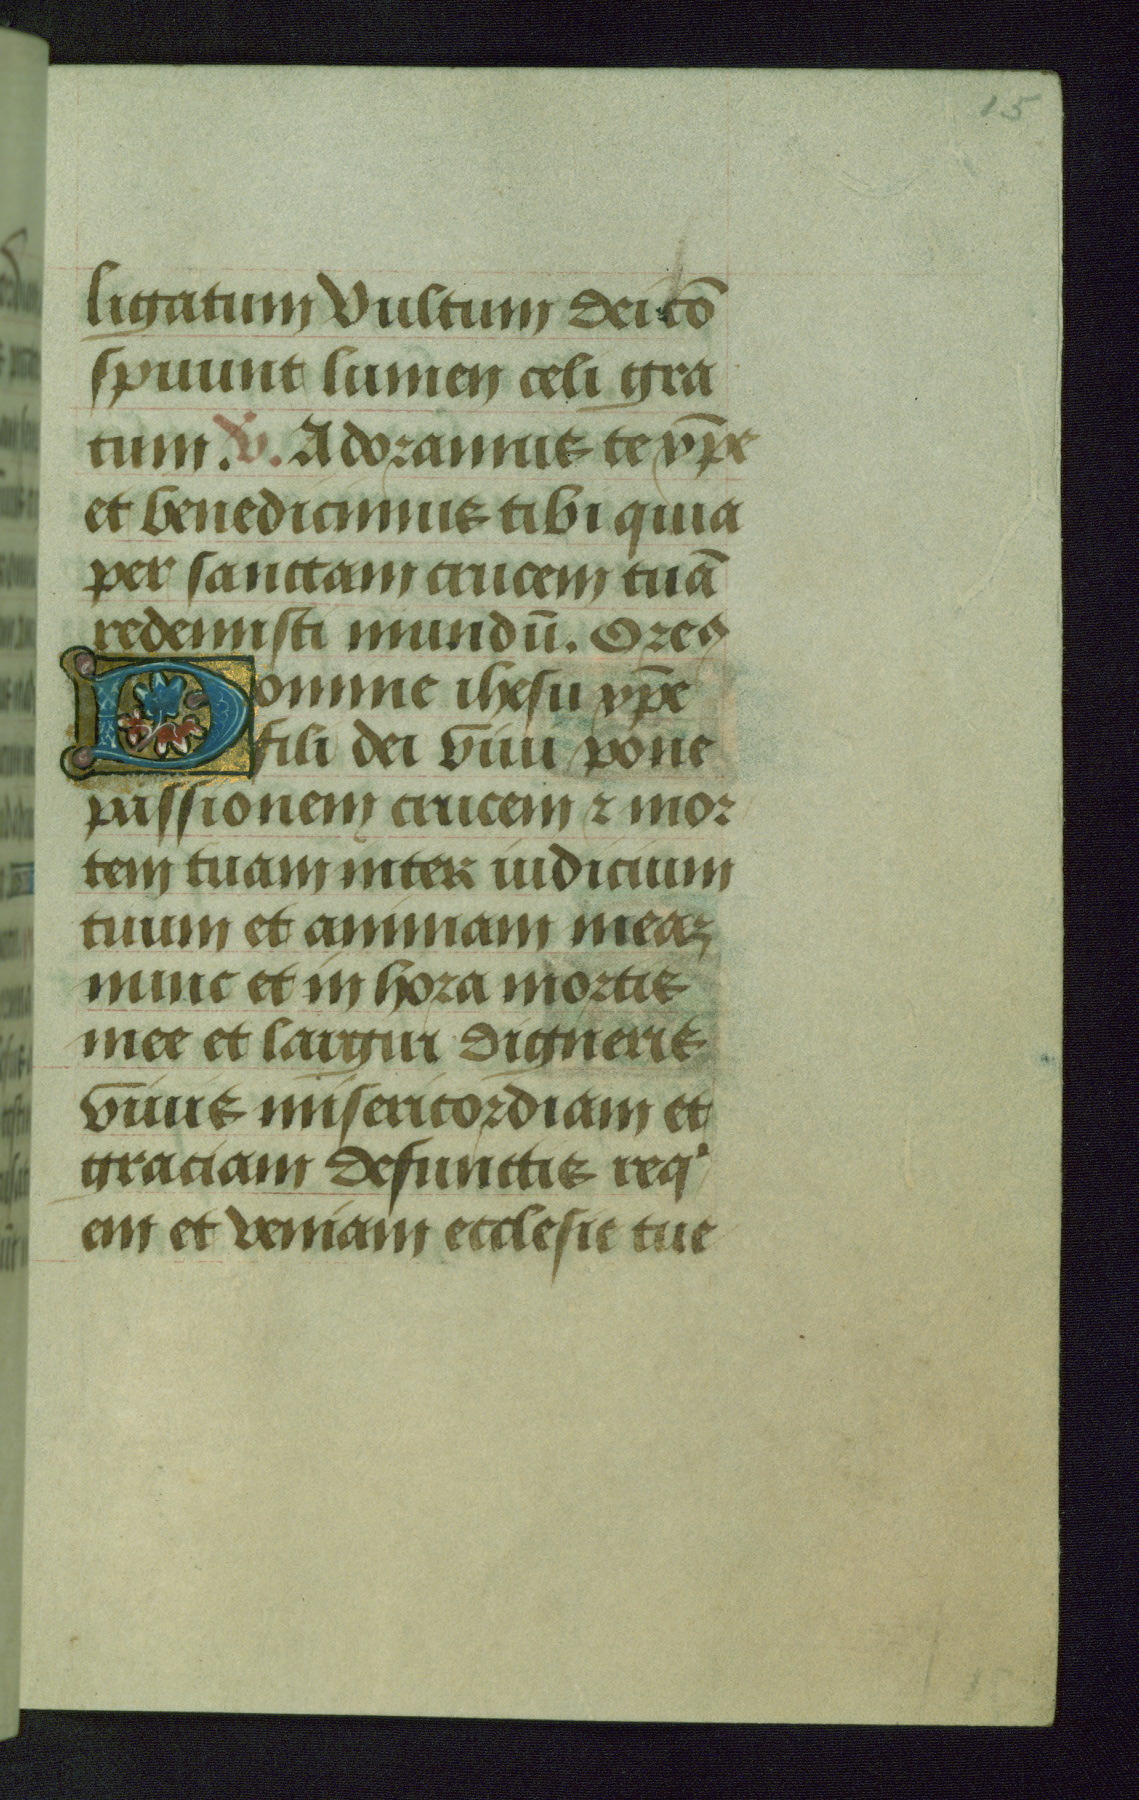 15
ligatum Vultum dei cō
spuunt lumen celi gra
tum. V. Adoramus te xp̄e
et benedicimus tibi quia
per sanctam crucem tuā
redemisti mundū. Oreꝰ
Domine ihesu xp̄e
fili dei viui pone
passionem crucem ⁊ mor
tem tuam inter iudicium
tuum et animam meaꝫ
nunc et in hora mortis
mee et largiri digneris
viuis misericordiam et
graciam defunctis reqͥ
em et veniam ecclesie tue